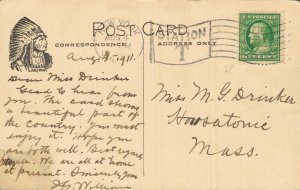 POST CARD
CORRESPONDENCE
ADDRESS ONLY
STATION
Aug 9. 1911.
Dear Miss Drinker
Glad to hear from
you. The card shows
a beautiful part of
the country. You must
enjoy it. Hope you
are both well. Best regards
We are all at home
at present. Sincerely
Williams
Miss M. G. Drinker
Housatonic
Mass.